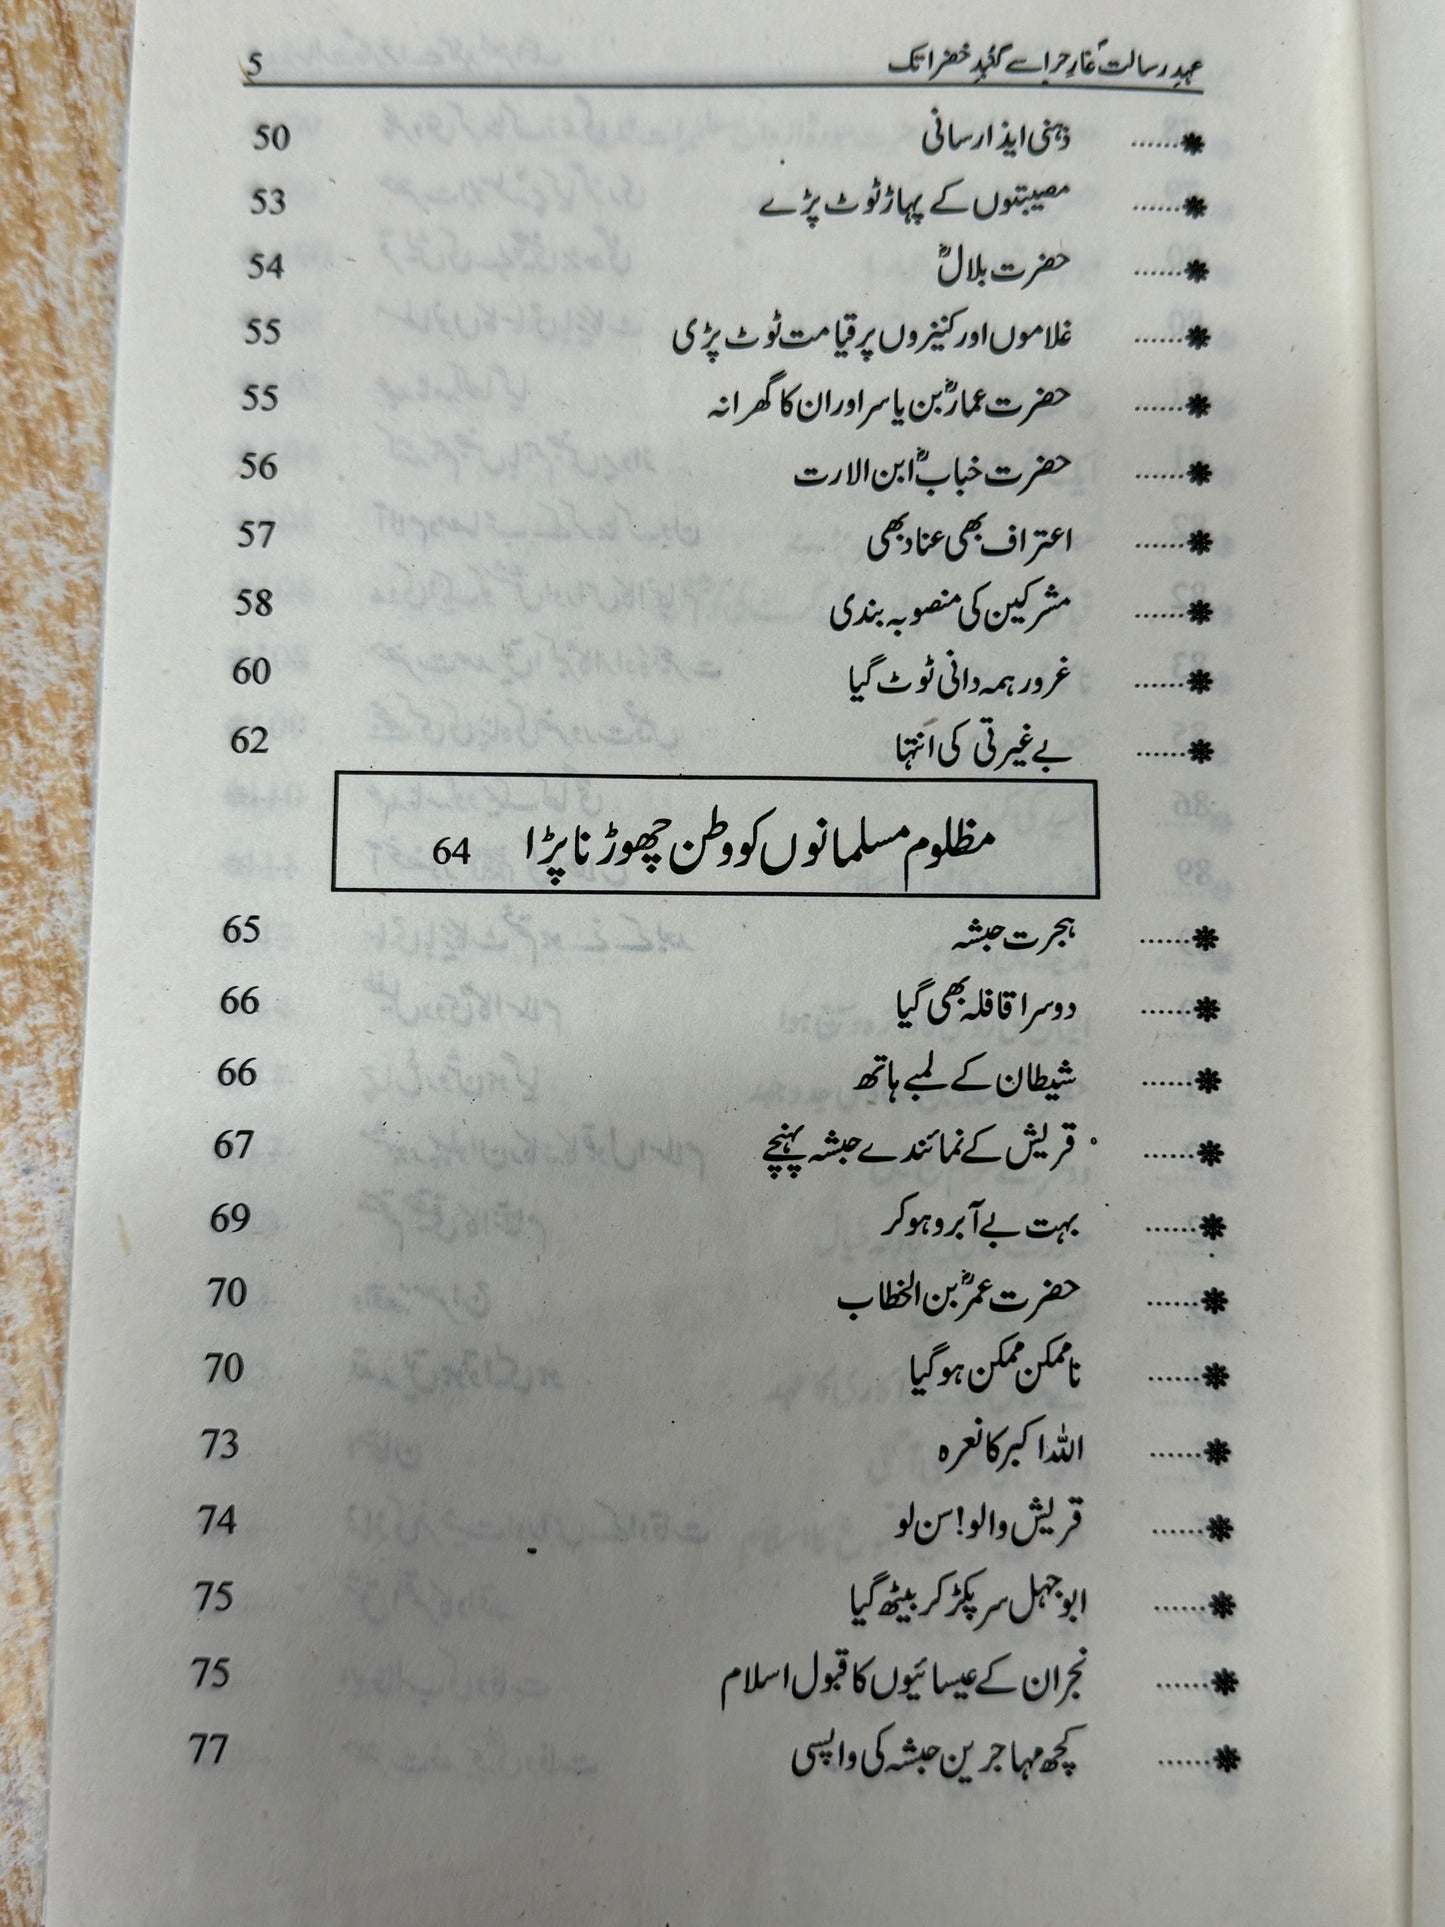 عہدِ رسالتؐ غارِ حرا سے گنبدِ خضرا تک 5
❋...... ذہنی ایذا رسانی 50
❋...... مصیبتوں کے پہاڑ ٹوٹ پڑے 53
❋...... حضرت بلالؓ 54
❋...... غلاموں اور کنیزوں پر قیامت ٹوٹ پڑی 55
❋...... حضرت عمارؓ بن یاسر اور ان کا گھرانہ 55
❋...... حضرت خبابؓ ابن الارت 56
❋...... اعتراف بھی عناد بھی 57
❋...... مشرکین کی منصوبہ بندی 58
❋...... غرور ہمہ دانی ٹوٹ گیا 60
❋...... بے غیرتی کی انتہا 62
مظلوم مسلمانوں کو وطن چھوڑنا پڑا 64
❋...... ہجرت حبشہ 65
❋...... دوسرا قافلہ بھی گیا 66
❋...... شیطان کے لمبے ہاتھ 66
❋...... قریش کے نمائندے حبشہ پہنچے 67
❋...... بہت بے آبرو ہو کر 69
❋...... حضرت عمرؓ بن الخطاب 70
❋...... ناممکن ممکن ہو گیا 70
❋...... اللہ اکبر کا نعرہ 73
❋...... قریش والو! سن لو 74
❋...... ابوجہل سر پکڑ کر بیٹھ گیا 75
❋...... نجران کے عیسائیوں کا قبول اسلام 75
❋...... کچھ مہاجرین حبشہ کی واپسی 77